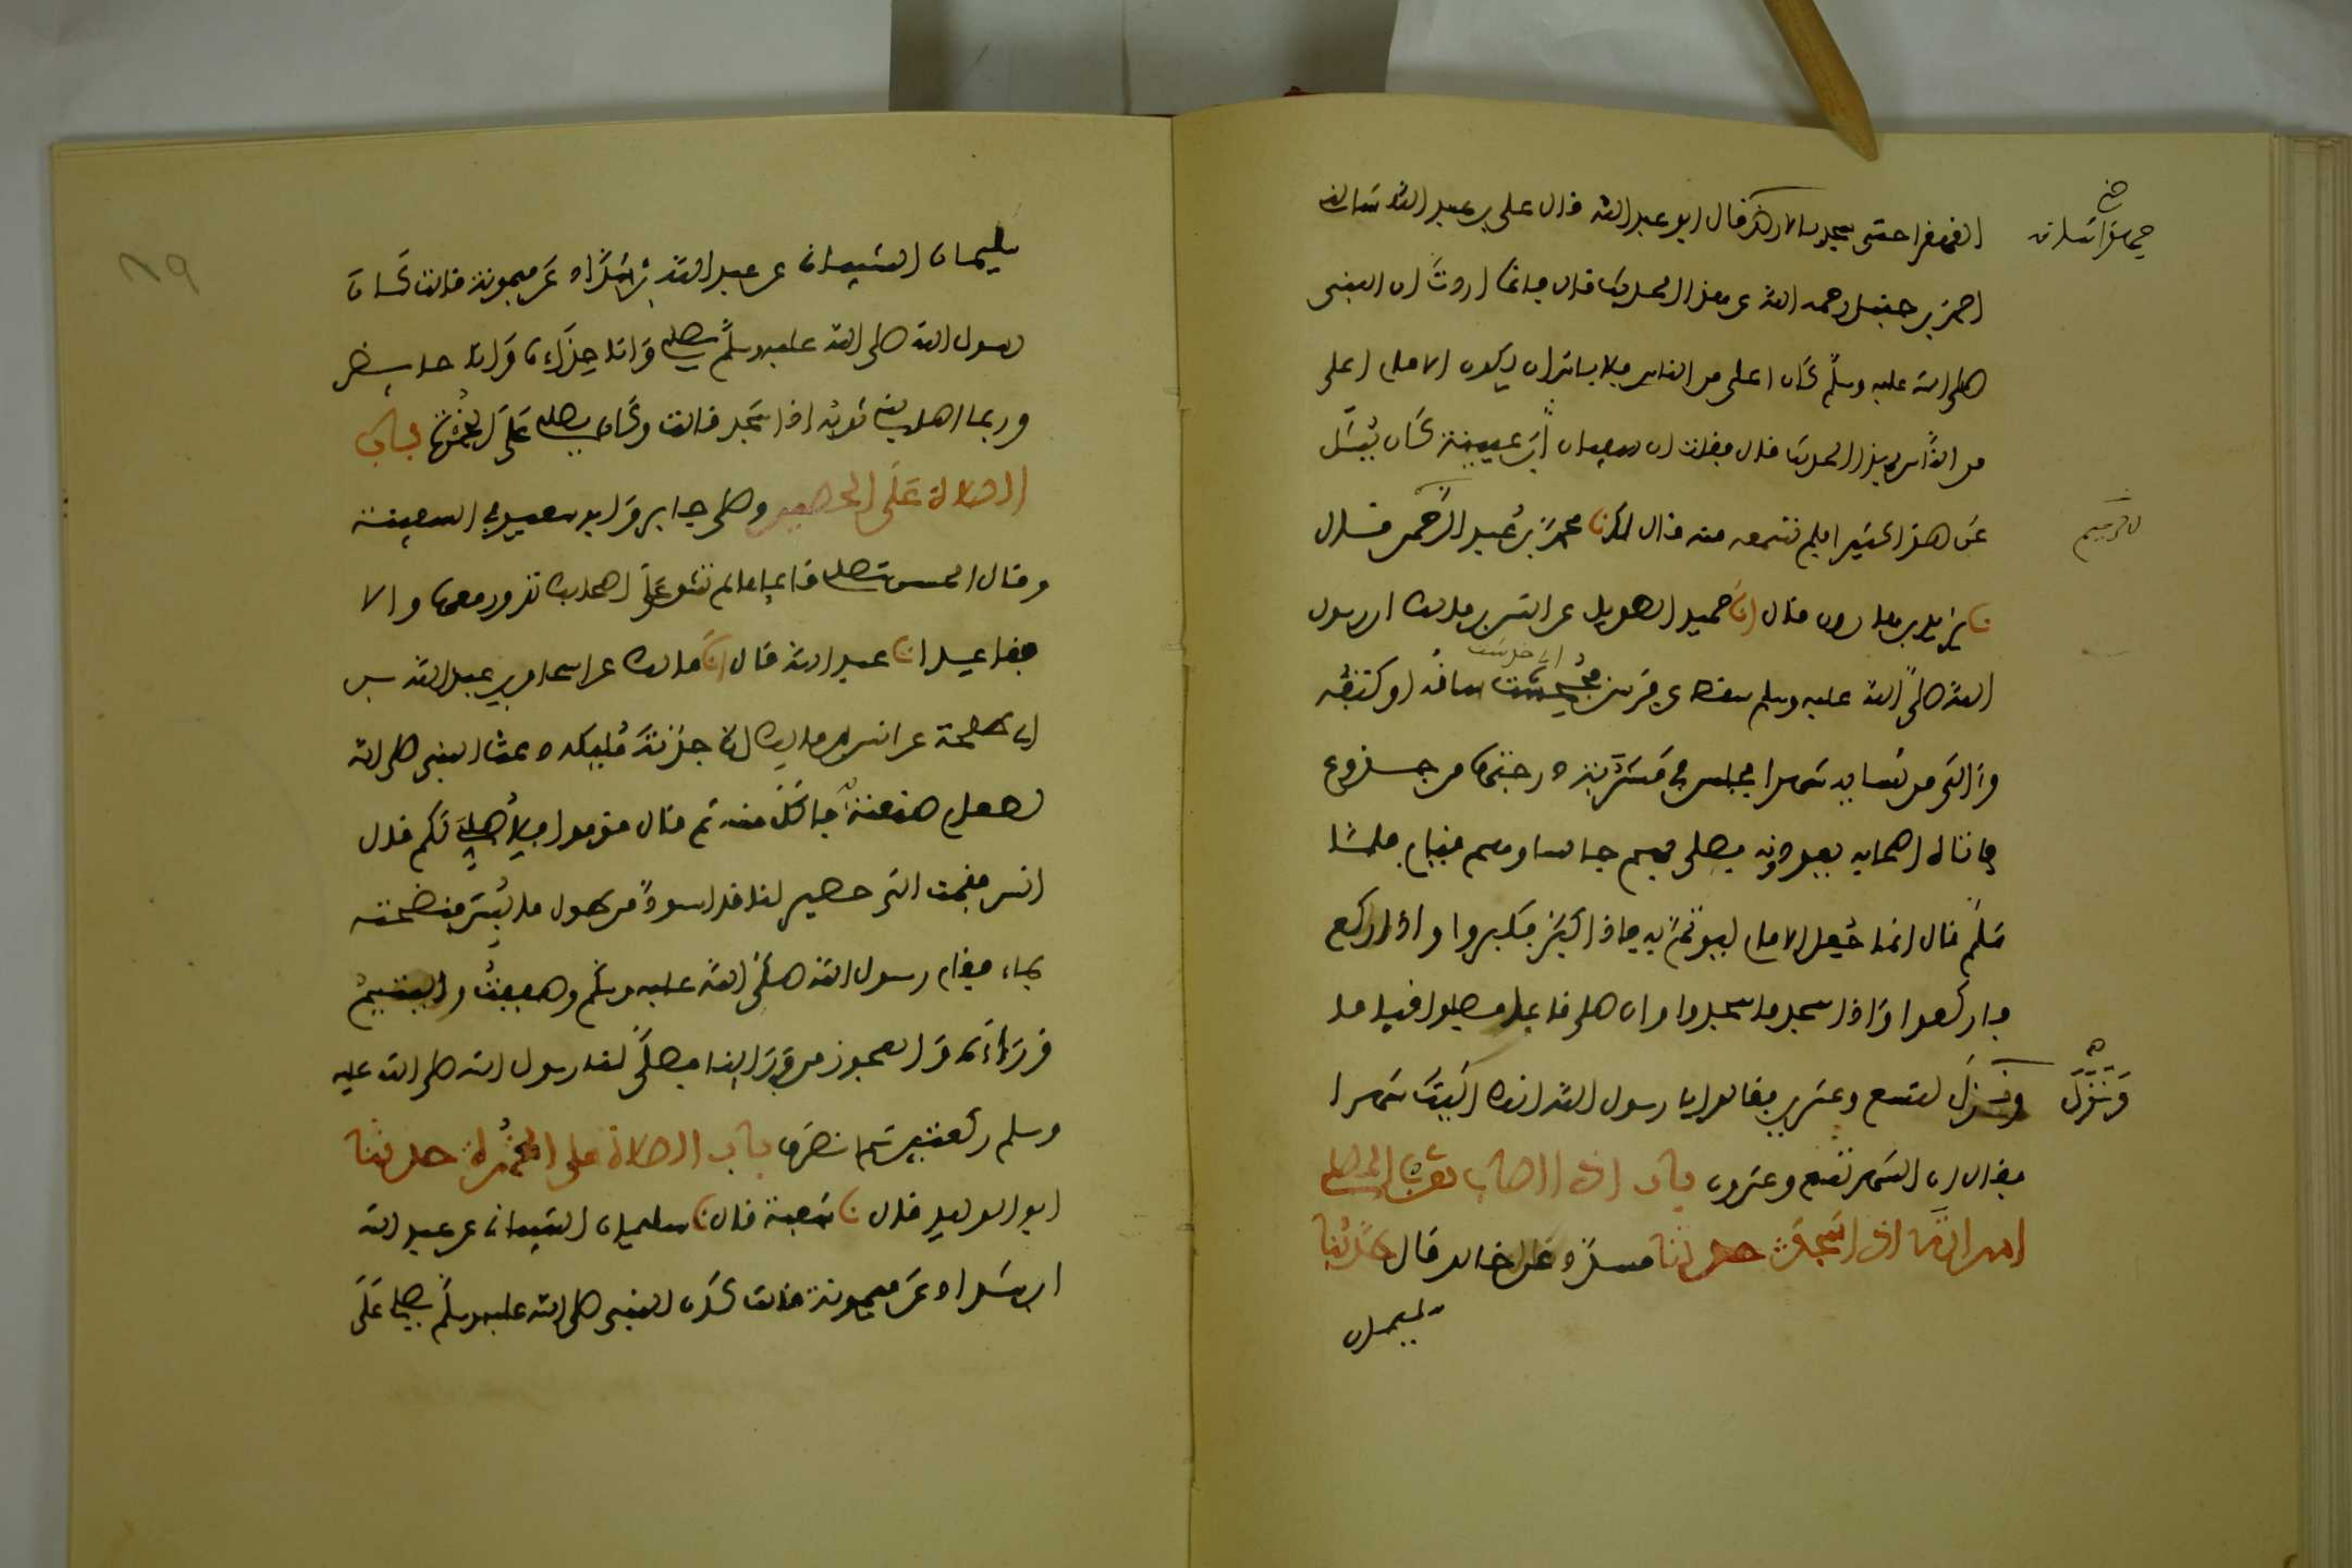 القهقرا حتى سجد بالارض قال ابو عبد الله قال علي بن عبد الله سالنى
احمد بن حنبل رحمه الله عن هذا الحديث قال فانما اردت ان النبى
صلى الله عليه وسلم كان اعلى من الناس فلا باس ان يكون الامام اعلى
من الناس بهذا الحديث قال فقلت ان سفيان ابن عيينة كان يسئل
عن هذا كثيرا فلم تسمعه منه قال لا نا محمد بن عبد الرحمن قال
نا يزيد بن هارون قال انا حميد الطويل عن انس بن مالك ان رسول
الله صلى الله عليه وسلم سقط عن فرس فجحشت ساقه او كتفه
اى خدشت
وءالى من نسايه شهرا فجلس في مشربة درجتها من جذوع
فاتاه اصحابه يعودونه فصلى بهم جالسا وهم قيام فلما
سلم قال انما جعل الامام ليوتم به فاذا كبر فكبروا واذا ركع
فاركعوا واذا سجد فاسجدوا وان صلى قائما فصلوا قياما
ونزل لتسع وعشرين فقالوا يا رسول الله انك ءاليت شهرا
وَنَزَلَ
فقال ان الشهر تسع وعشرون باب اذا اصاب ثوب المصلى
امراته اذا سجد حدثنا مسدد عن خالد قال حدثنا
سليمان
٨٩
سليمان الشيبانى عن عبد الله بن شداد عن ميمونة قالت كان
رسول الله صلى الله عليه وسلم يصلى وانا حذاءه وانا حايض
وربما اصابنى ثوبه اذا سجد قالت وكان يصلى على الخمرة باب
الصلاة على الحصير وصلى جابر وابو سعيد في السفينة
وقال الحسن تصلى قائما ما لم تشق على اصحابك تدور معها والا
فقاعدا نا عبد الله قال انا مالك عن اسحاق بن عبد الله بن
ابى طلحة عن انس بن مالك ان جدته مليكة دعت النبى صلى الله
لطعام صنعته فاكل منه ثم قال قوموا فلاصلى لكم قال
انس فقمت الى حصير لنا قد اسود من طول ما لبس فنضحته
بماء فقام رسول الله صلى الله عليه وسلم وصففت واليتيم
وراءه والعجوز من ورائنا فصلى لنا رسول الله صلى الله عليه
وسلم ركعتين ثم انصرف باب الصلاة على الخمرة حدثنا
ابو الوليد قال نا شعبة قال نا سليمان الشيبانى عن عبد الله
ابن شداد عن ميمونة قالت كان النبى صلى الله عليه وسلم يصلى على